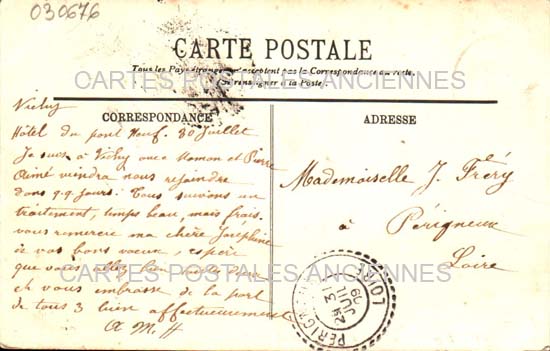 030676
CARTE POSTALE
Tous les Pays étrangers n'acceptent pas la Correspondance au recto.
(Se renseigner à la Poste)
CARTES POSTALES ANCIENNES
CORRESPONDANCE
ADRESSE
Vichy
Hôtel du pont Neuf. 30 Juillet
Je suis à Vichy avec Maman et Pierre
Aimé viendra nous rejoindre
dans q.q. jours. Tous suivons un
traitement, temps beau, mais frais.
vous remercie ma chère Joséphine
de vos bons voeux, espère
que vous allez bien
et vous embrasse de la part
de tous 3 bien affectueusement
A M H
Mademoiselle J. Fréry
à Périgneux
Loire
CARTES POSTALES ANCIENNES
PERIGNEUX
LOIRE
31
JUIL
09